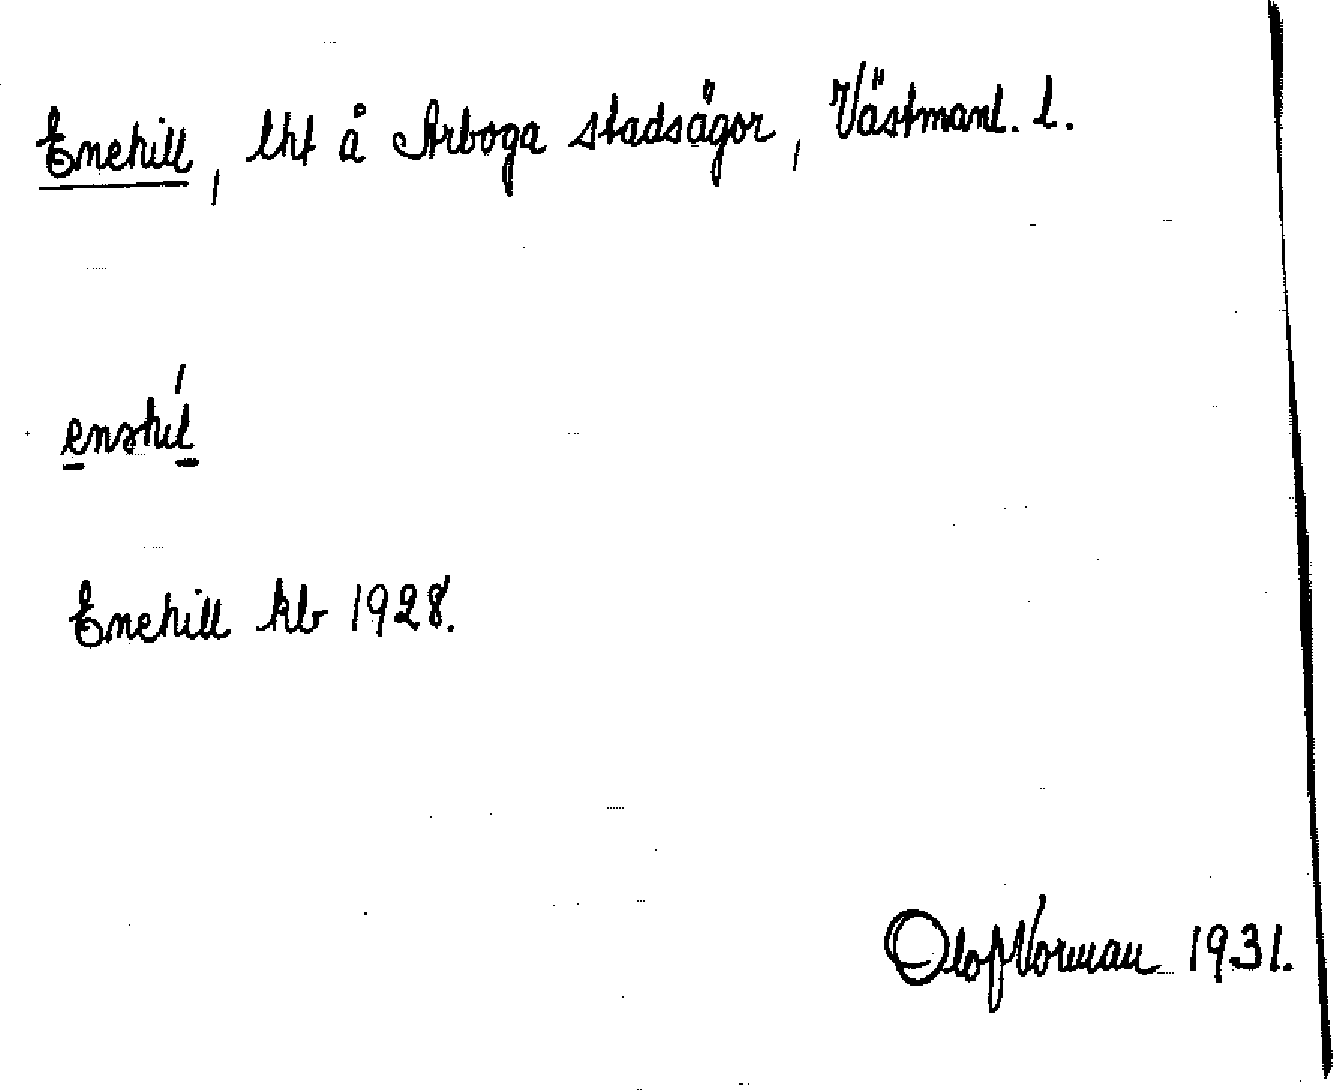 Enehill, lht å Arboga stadsägor, Västmanl. l.
enəhíl
Enehill kb 1928.
Olof Norman 1931.